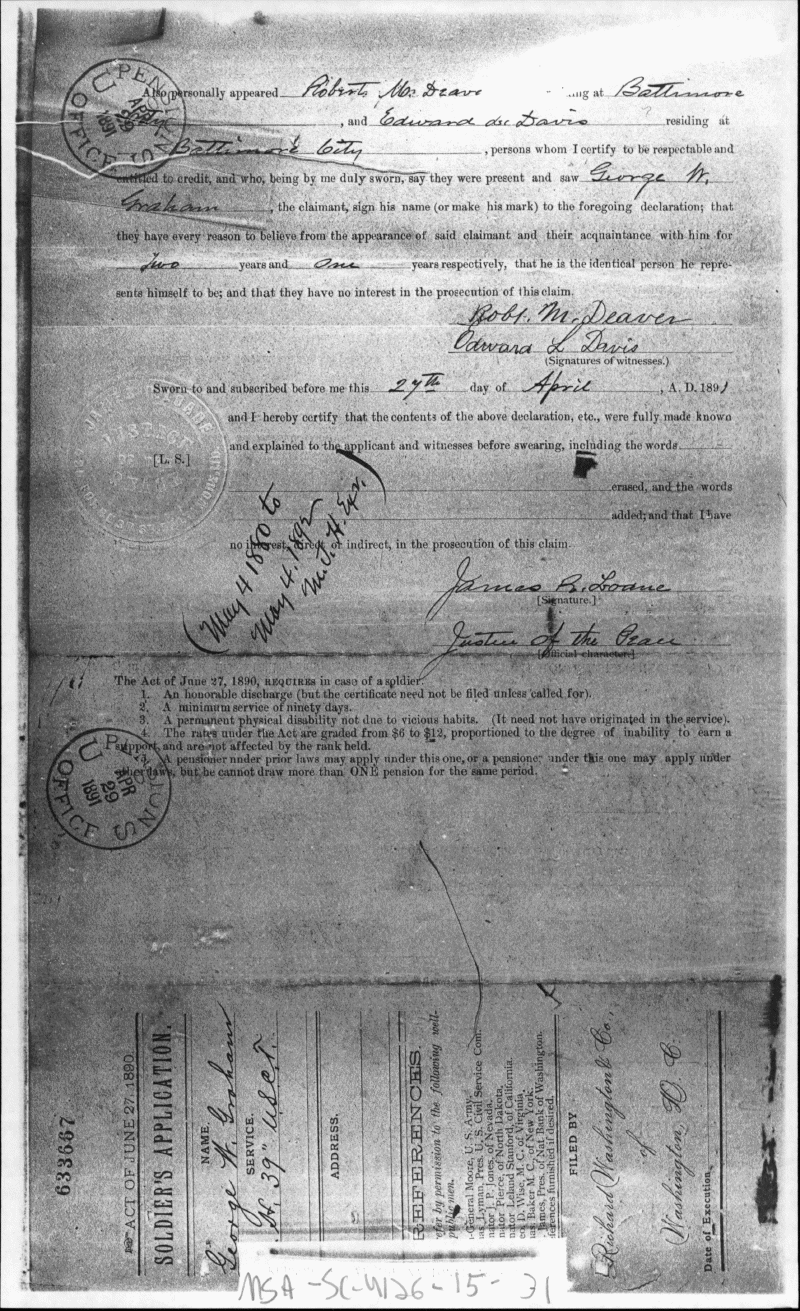 U. S. PENSION OFFICE
APR 29 1891
Also personally appeared Robert M. Deaver at Baltimore
, and Edward L. Davis residing at
Baltimore City , persons whom I certify to be respectable and
entitled to credit, and who, being by me duly sworn, say they were present and saw George W.
Graham , the claimant, sign his name (or make his mark) to the foregoing declaration; that
they have every reason to believe from the appearance of said claimant and their acquaintance with him for
Two years and One years respectively, that he is the identical person he repre-
sents himself to be; and that they have no interest in the prosecution of this claim.
Robt. M. Deaver
Edward L Davis
(Signatures of witnesses.)
Sworn to and subscribed before me this 27th day of April , A. D. 1891
and I hereby certify that the contents of the above declaration, etc., were fully made known
and explained to the applicant and witnesses before swearing, including the words
[L. S.]
erased, and the words
added; and that I have
no interest, direct or indirect, in the prosecution of this claim.
(May 4 1890 to
May 4, 1892
James R. Loane
[Signature.]
Justice of the Peace
[Official character.]
The Act of June 27, 1890, REQUIRES in case of a soldier:
1. An honorable discharge (but the certificate need not be filed unless called for).
2. A minimum service of ninety days.
3. A permanent physical disability not due to vicious habits. (It need not have originated in the service).
4. The rates under the Act are graded from $6 to $12, proportioned to the degree of inability to earn a
support, and are not affected by the rank held.
5. A pensioner under prior laws may apply under this one, or a pensioner under this one may apply under
other laws, but he cannot draw more than ONE pension for the same period.
U. S. PENSION OFFICE
APR 29 1891
633667
ACT OF JUNE 27, 1890.
SOLDIER'S APPLICATION.
NAME.
George W. Graham
SERVICE.
H. 39" U.S.C.T.
ADDRESS.
REFERENCES.
refer by permission to the following well-
public men.
General Moore, U. S. Army.
Lyman, Pres. U. S. Civil Service Com.
J. P. Jones, of Nevada.
Pierce, of North Dakota.
Leland Stanford, of California.
D. Wise, M. C. of Virginia.
Baker M. C. of New York.
James, Pres. of Nat. Bank of Washington.
references furnished if desired.
FILED BY
Richard Washington & Co.,
of
Washington, D. C.
Date of Execution
MSA-SC-4126-15-31